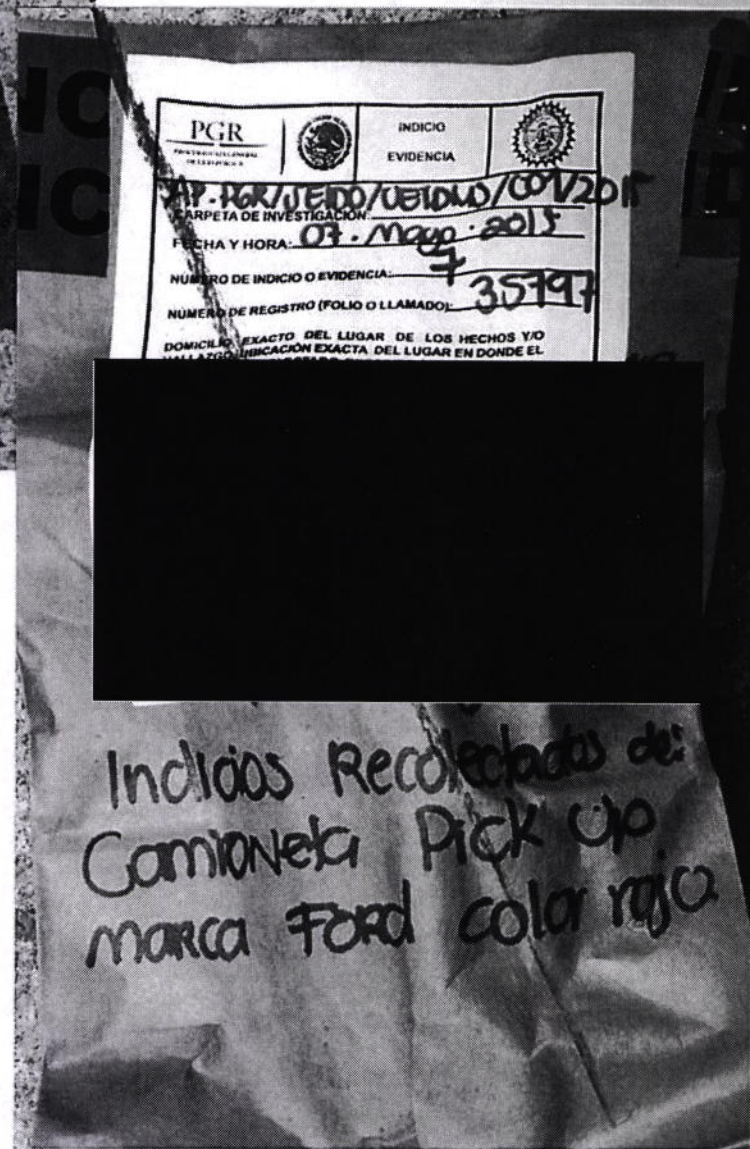 PGR
PROCURADURÍA GENERAL
DE LA REPÚBLICA
INDICIO
EVIDENCIA
AP.PGR/SEIDO/UEIDMS/001/2015
CARPETA DE INVESTIGACIÓN:
FECHA Y HORA: 07. Mayo. 2015
NÚMERO DE INDICIO O EVIDENCIA: 7
NÚMERO DE REGISTRO (FOLIO O LLAMADO): 35797
DOMICILIO EXACTO DEL LUGAR DE LOS HECHOS Y/O
HALLAZGO UBICACIÓN EXACTA DEL LUGAR EN DONDE EL
Indicios Recolectados de:
Camioneta Pick Up
marca Ford color rojo